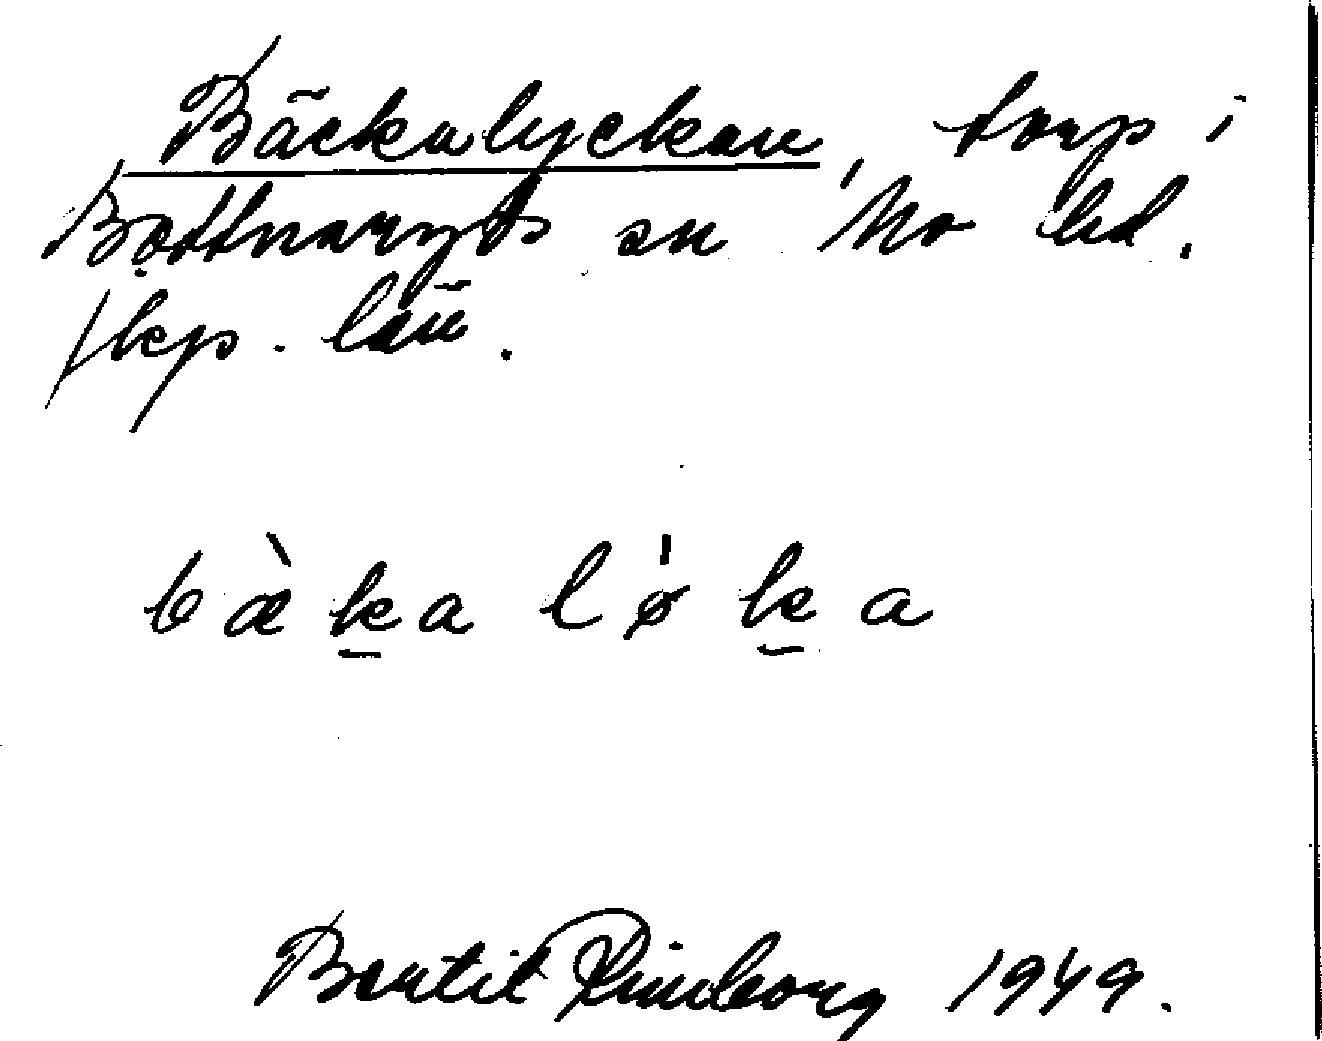 Bäckalyckan, torp i
Bottnaryds sn Mo hd.
Jkp. län.
bæ̀k̠a lǿk̠a
Bertil Rimborg 1949.